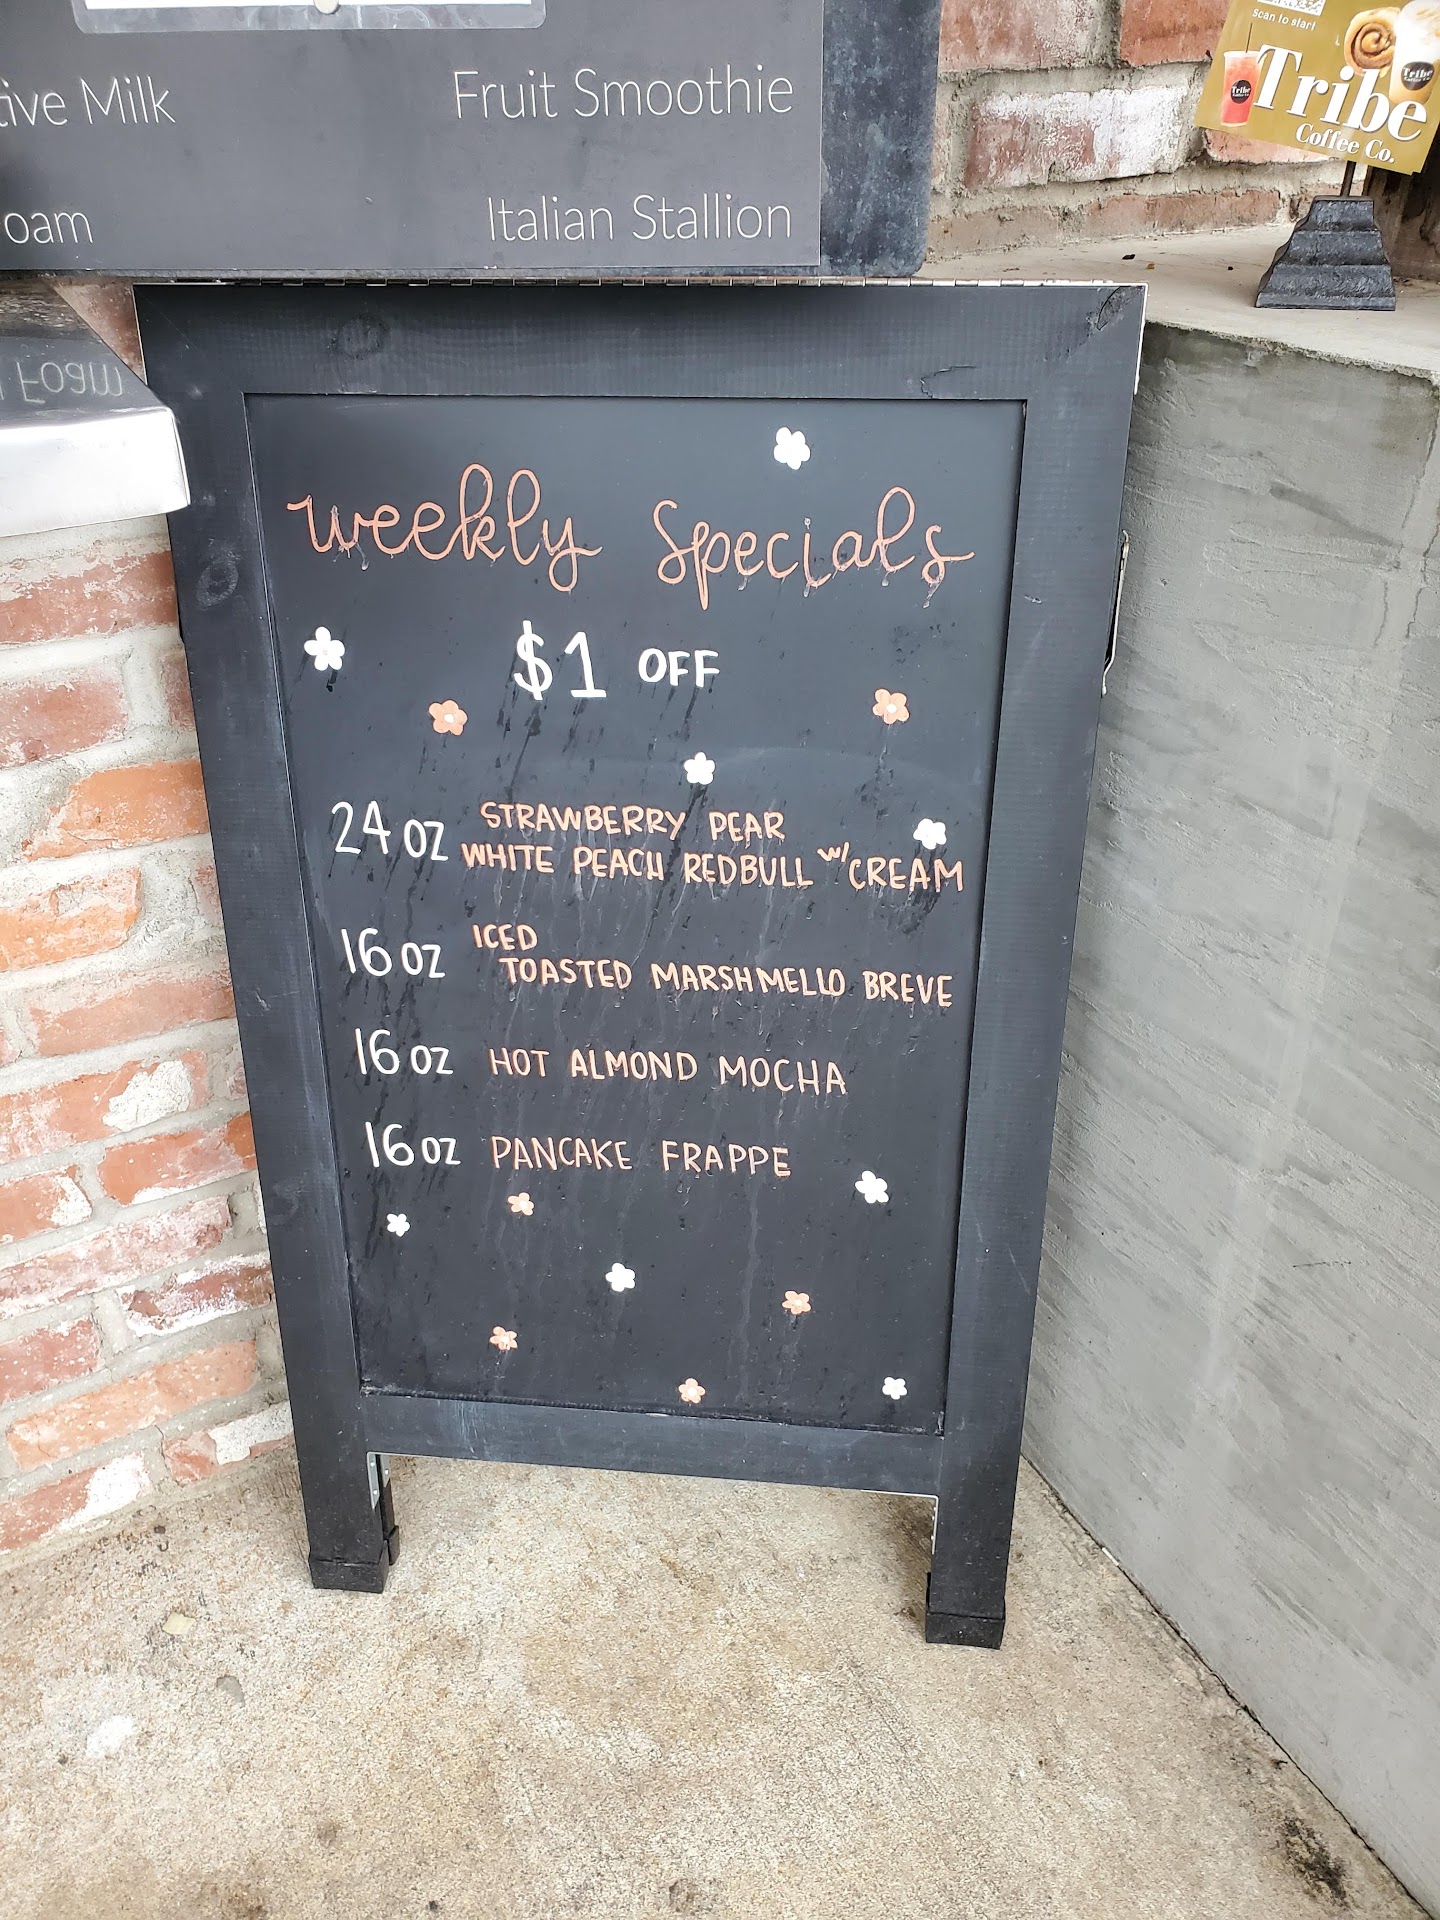 Milk
Fruit Smoothie
Italian Stallion
Foam
scan to start
Tribe
Coffee Co.
Tribe
Tribe
weekly specials
$1 OFF
24 OZ STRAWBERRY PEAR
WHITE PEACH REDBULL w/ CREAM
16 OZ ICED
TOASTED MARSHMELLO BREVE
16 OZ HOT ALMOND MOCHA
16 OZ PANCAKE FRAPPE